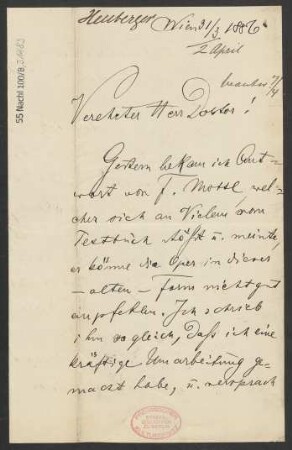 Heuberger Wien 31/3 1886
2 April
beantw. 7/4
55 Nachl 100/B
Verehrter Herr Doktor!
Gestern bekam ich Ant-
wort von F. Mottl, wel-
cher sich an Vielem vom
Textbuch stößt u. meinte,
er könne die Oper in dieser
– alten – Form nicht gut
empfehlen. Ich schrieb
ihm sogleich, daß ich eine
kräftige Umarbeitung ge-
macht habe, u. versprach